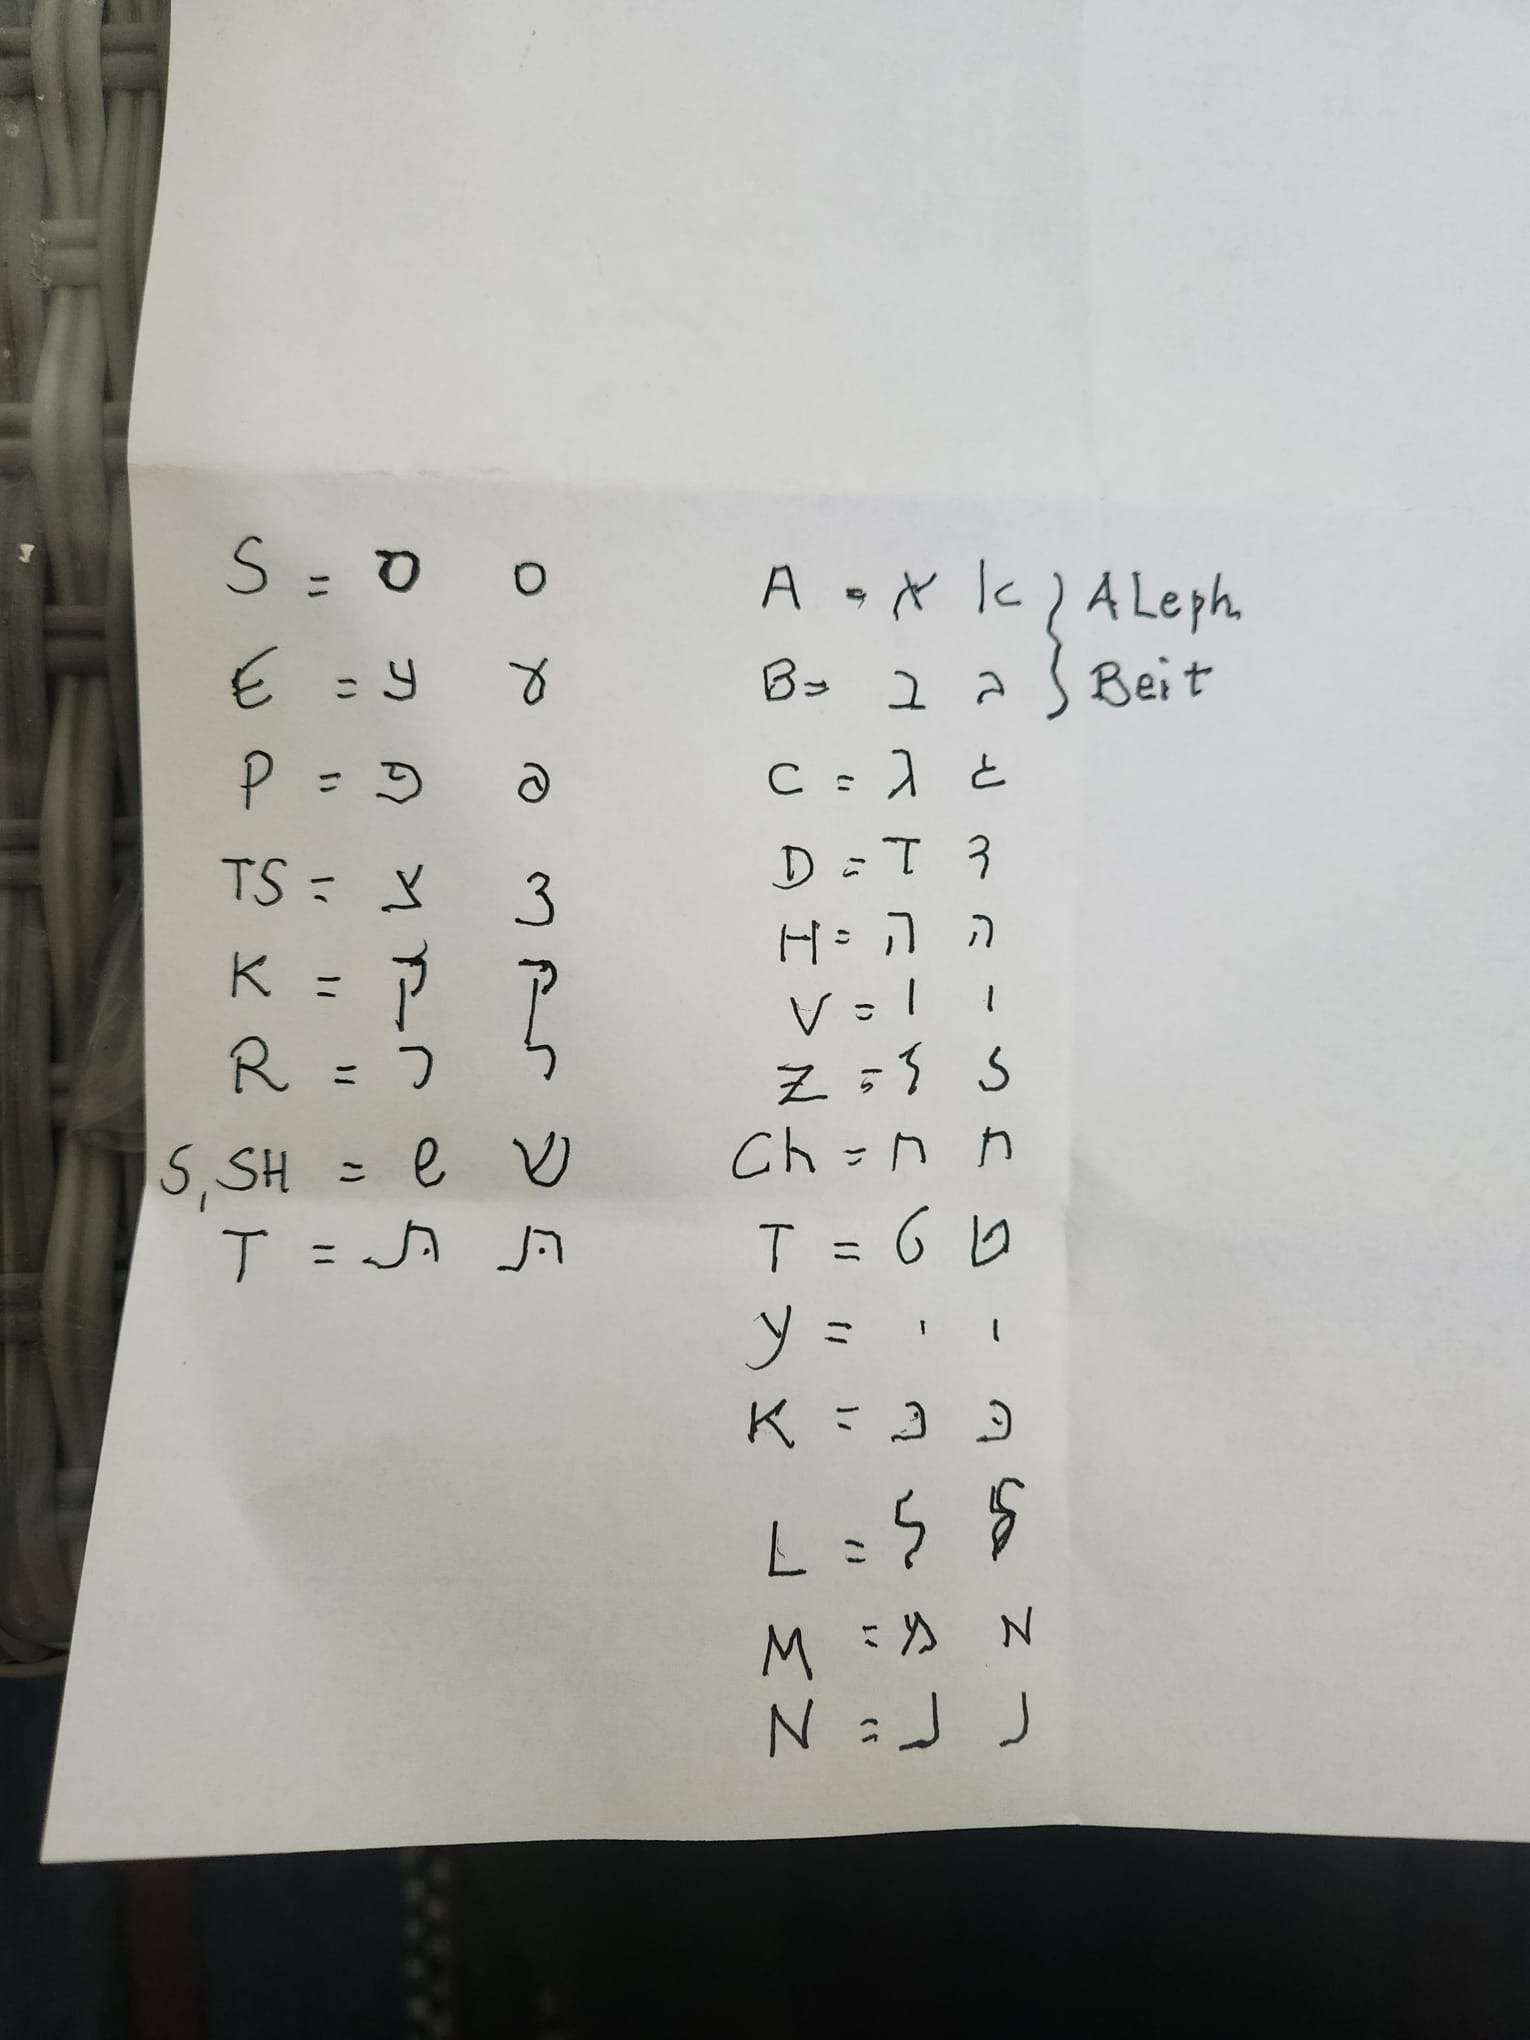 A = א א } ALeph
B = ב ב } Beit
C = ג ג
D = ד ד
H = ה ה
V = ו ו
Z = ז ז
Ch = ח ח
T = ט ט
Y = י י
K = כּ כּ
L = ל ל
M = מ מ
N = נ נ
S = ס ס
E = ע ע
P = פ פ
TS = צ צ
K = ק ק
R = ר ר
S, SH = ש ש
T = תּ תּ